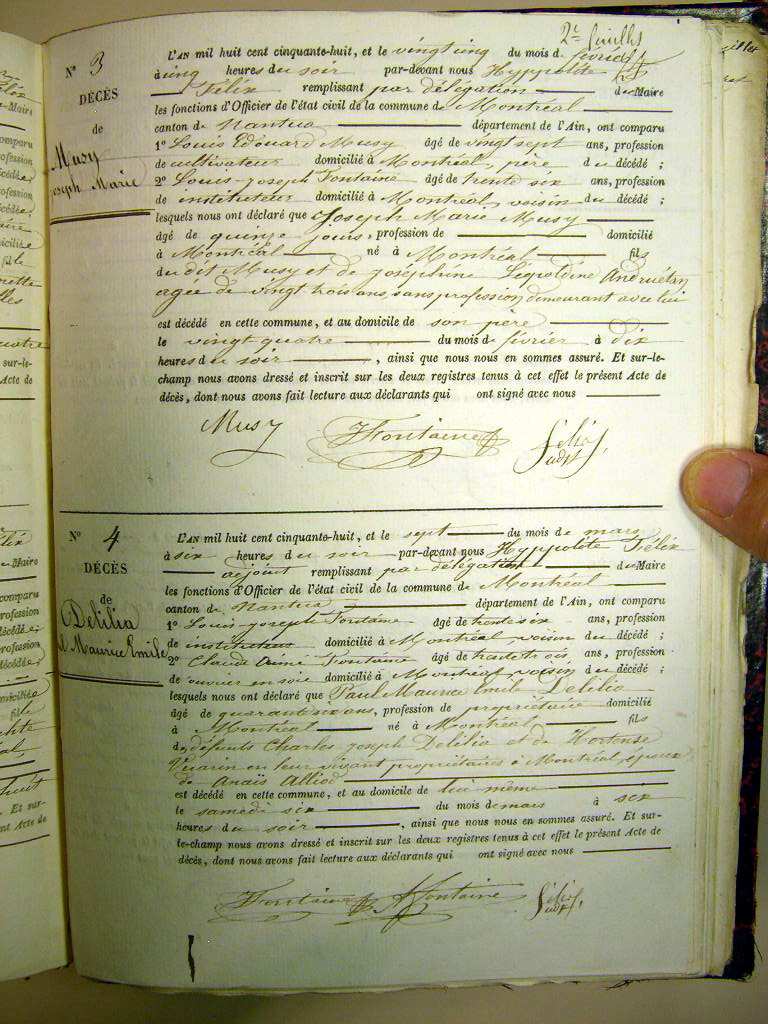 2e feuillet
N° 3
DÉCÈS
de
Musy
Joseph Marie
L'AN mil huit cent cinquante-huit, et le vingt cinq du mois de février
à cinq heures du soir par-devant nous Hyppolite
Félix remplissant par délégation du Maire
les fonctions d'Officier de l'état civil de la commune de Montréal
canton de Nantua département de l'Ain, ont comparu
1° Louis Edouard Musy âgé de vingt sept ans, profession
de cultivateur domicilié à Montréal, père du décédé ;
2° Louis-joseph Fontaine âgé de trente six ans, profession
de instituteur domicilié à Montréal, voisin du décédé ;
lesquels nous ont déclaré que Joseph Marie Musy
âgé de quinze jours, profession de domicilié
à Montréal né à Montréal fils
du dit Musy et de joséphine Léopoldine Andruétan
agée de vingt trois ans, sans profession demeurant avec lui
est décédé en cette commune, et au domicile de son père
le vingt quatre du mois de février à dix
heures du soir , ainsi que nous nous en sommes assuré. Et sur-le-
champ nous avons dressé et inscrit sur les deux registres tenus à cet effet le présent Acte de
décès, dont nous avons fait lecture aux déclarants qui ont signé avec nous
Musy Fontaine Félix adjt
N° 4
DÉCÈS
de
Delilia
Maurice Emile
L'AN mil huit cent cinquante-huit, et le sept du mois de mars
à six heures du soir par-devant nous Hyppolite Félix
adjoint remplissant par délégation du Maire
les fonctions d'Officier de l'état civil de la commune de Montréal
canton de Nantua département de l'Ain, ont comparu
1° Louis-joseph Fontaine âgé de trente six ans, profession
de instituteur domicilié à Montréal, voisin du décédé ;
2° Claude Aimé Fontaine âgé de trente trois ans, profession
de ouvrier en soie domicilié à Montréal voisin du décédé ;
lesquels nous ont déclaré que Paul Maurice Emile Delilia
âgé de quarante six ans, profession de propriétaire domicilié
à Montréal né à Montréal fils
de défunts Charles Joseph Delilia et de Hortense
Vuarin en leur vivant propriétaires à Montréal, époux
de Anaïs Alliod
est décédé en cette commune, et au domicile de lui même
le samedi six du mois de mars à six
heures du soir , ainsi que nous nous en sommes assuré. Et sur-
le-champ nous avons dressé et inscrit sur les deux registres tenus à cet effet le présent Acte de
décès, dont nous avons fait lecture aux déclarants qui ont signé avec nous
Fontaine Fontaine Félix adjt